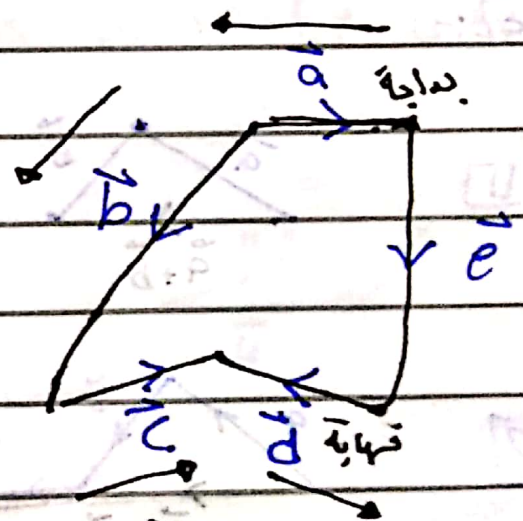 a بداية
b e
c d نهاية